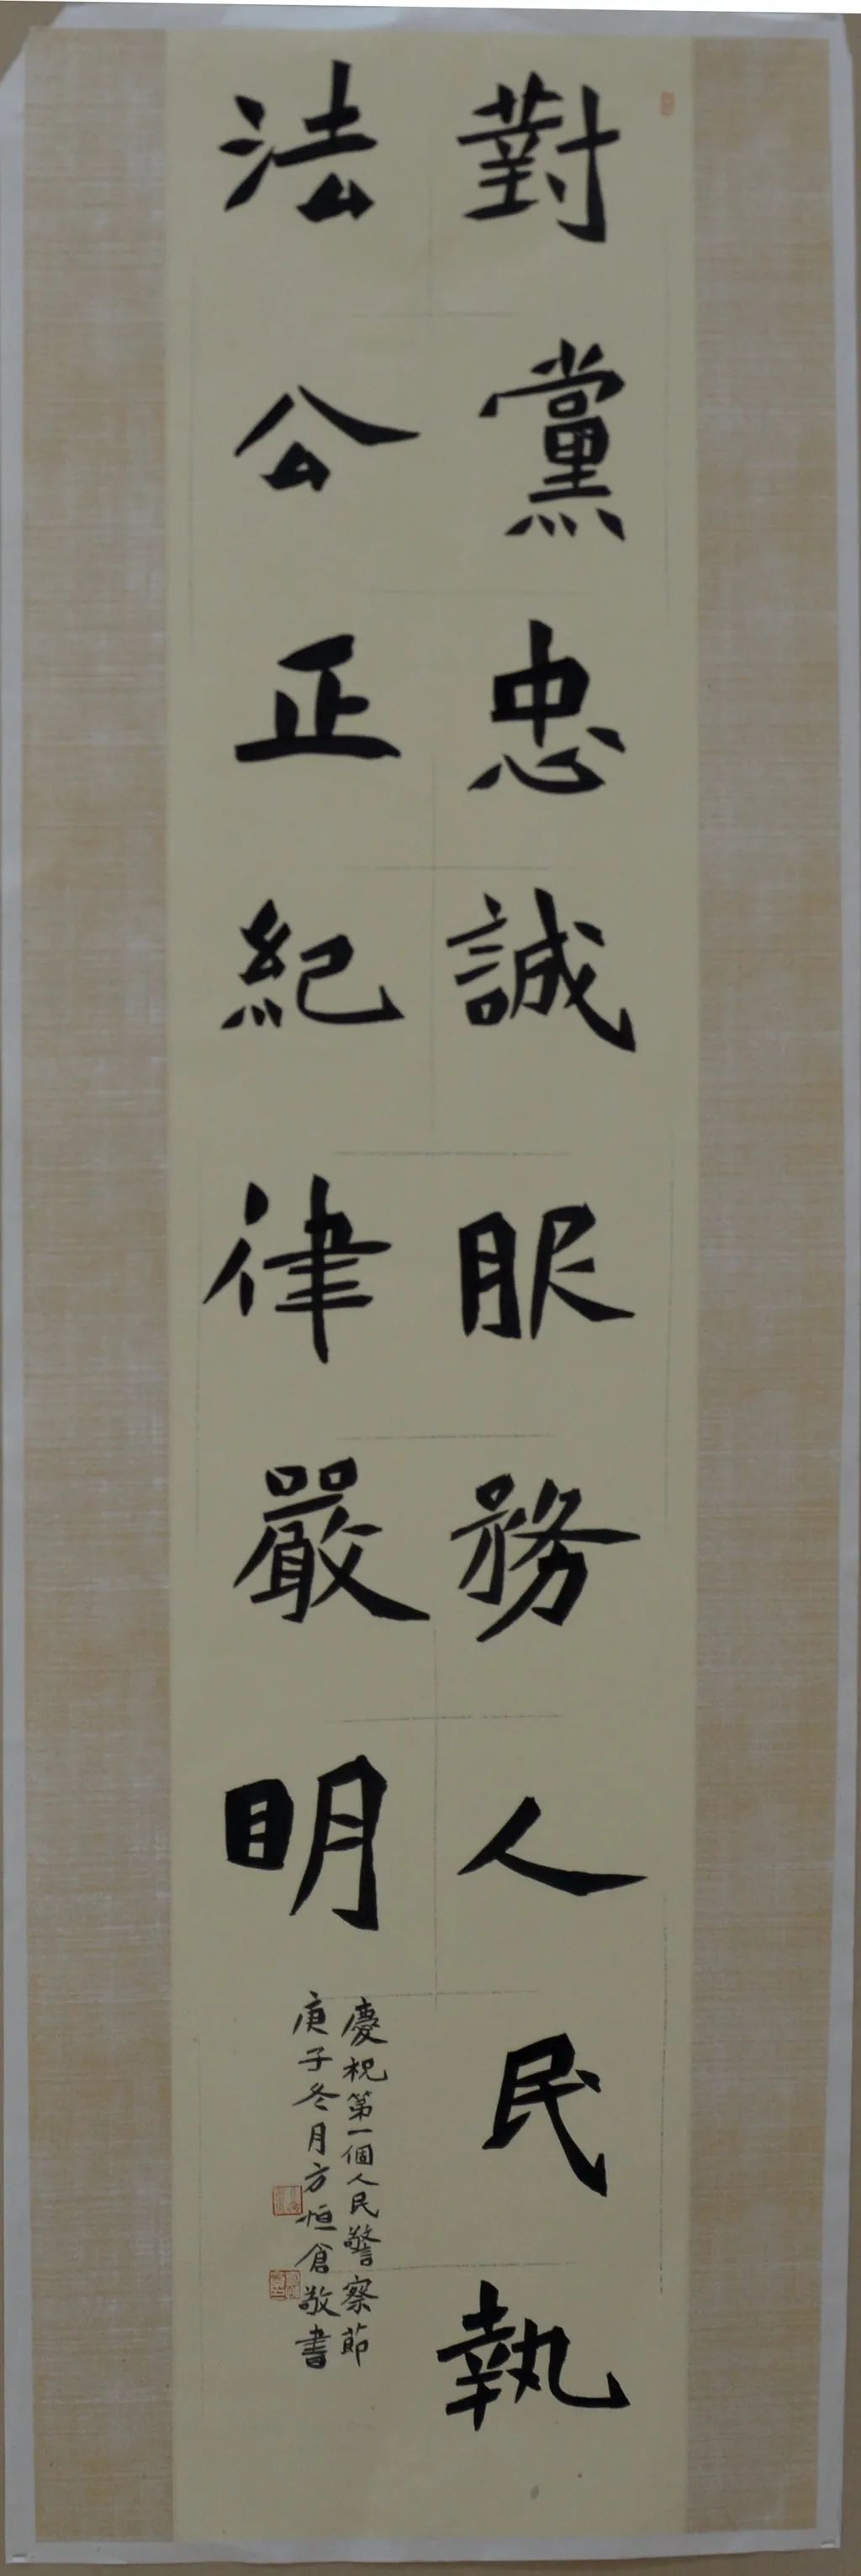 對黨忠誠服務人民執
法公正紀律嚴明
慶祝第一個人民警察節
庚子冬月方恒倉敬書